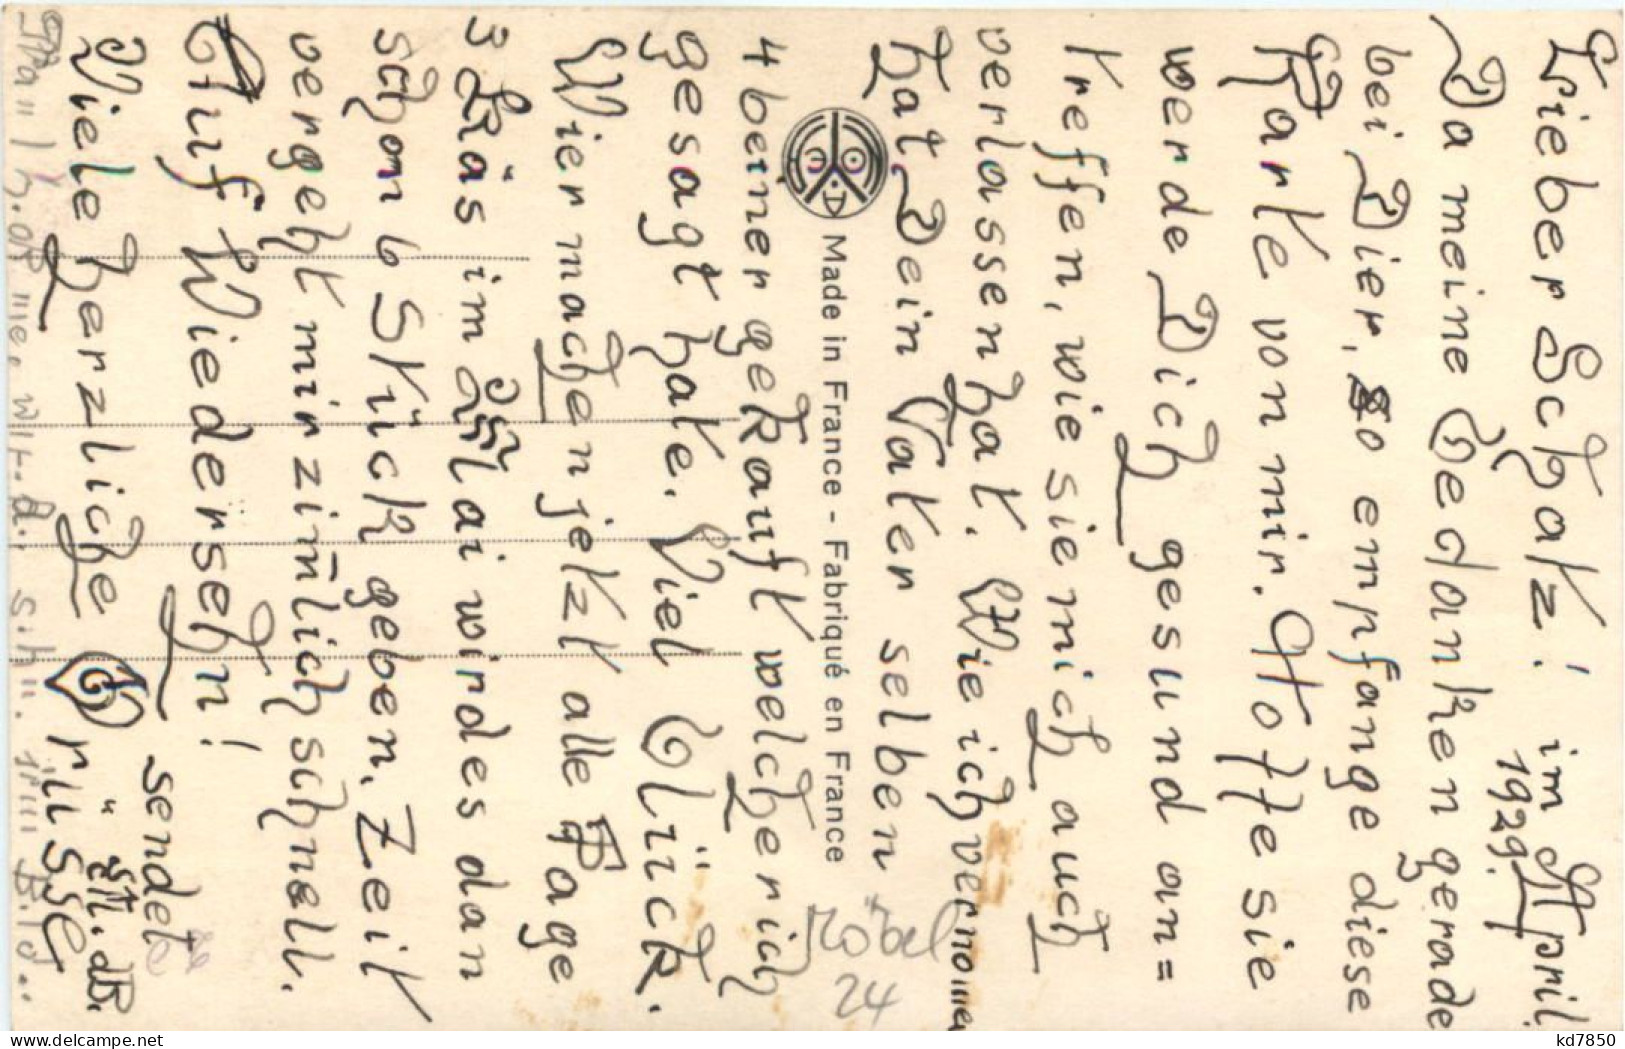 Lieber Schatz! im April
1929.
Da meine Gedanken gerade
bei Dier, so empfange diese
Karte von mir. Hoffe sie
werde Dich gesund an=
treffen, wie sie mich auch
verlassen hat. Wie ich vernommen
hat Dein Vater selben
4 beiner gekauft welche rich
gesagt hate. Viel Glück.
Wier machen jetzt alle Tage
3 Käs im Lai wird es dan
schon 6 Stück geben, Zeit
vergeht mir zimlich schnell.
Auf Wiedersehn!
sendet
Viele herzliche Grüsse
Made in France - Fabriqué en France
Möbel
24
delcampe.net
kd7850